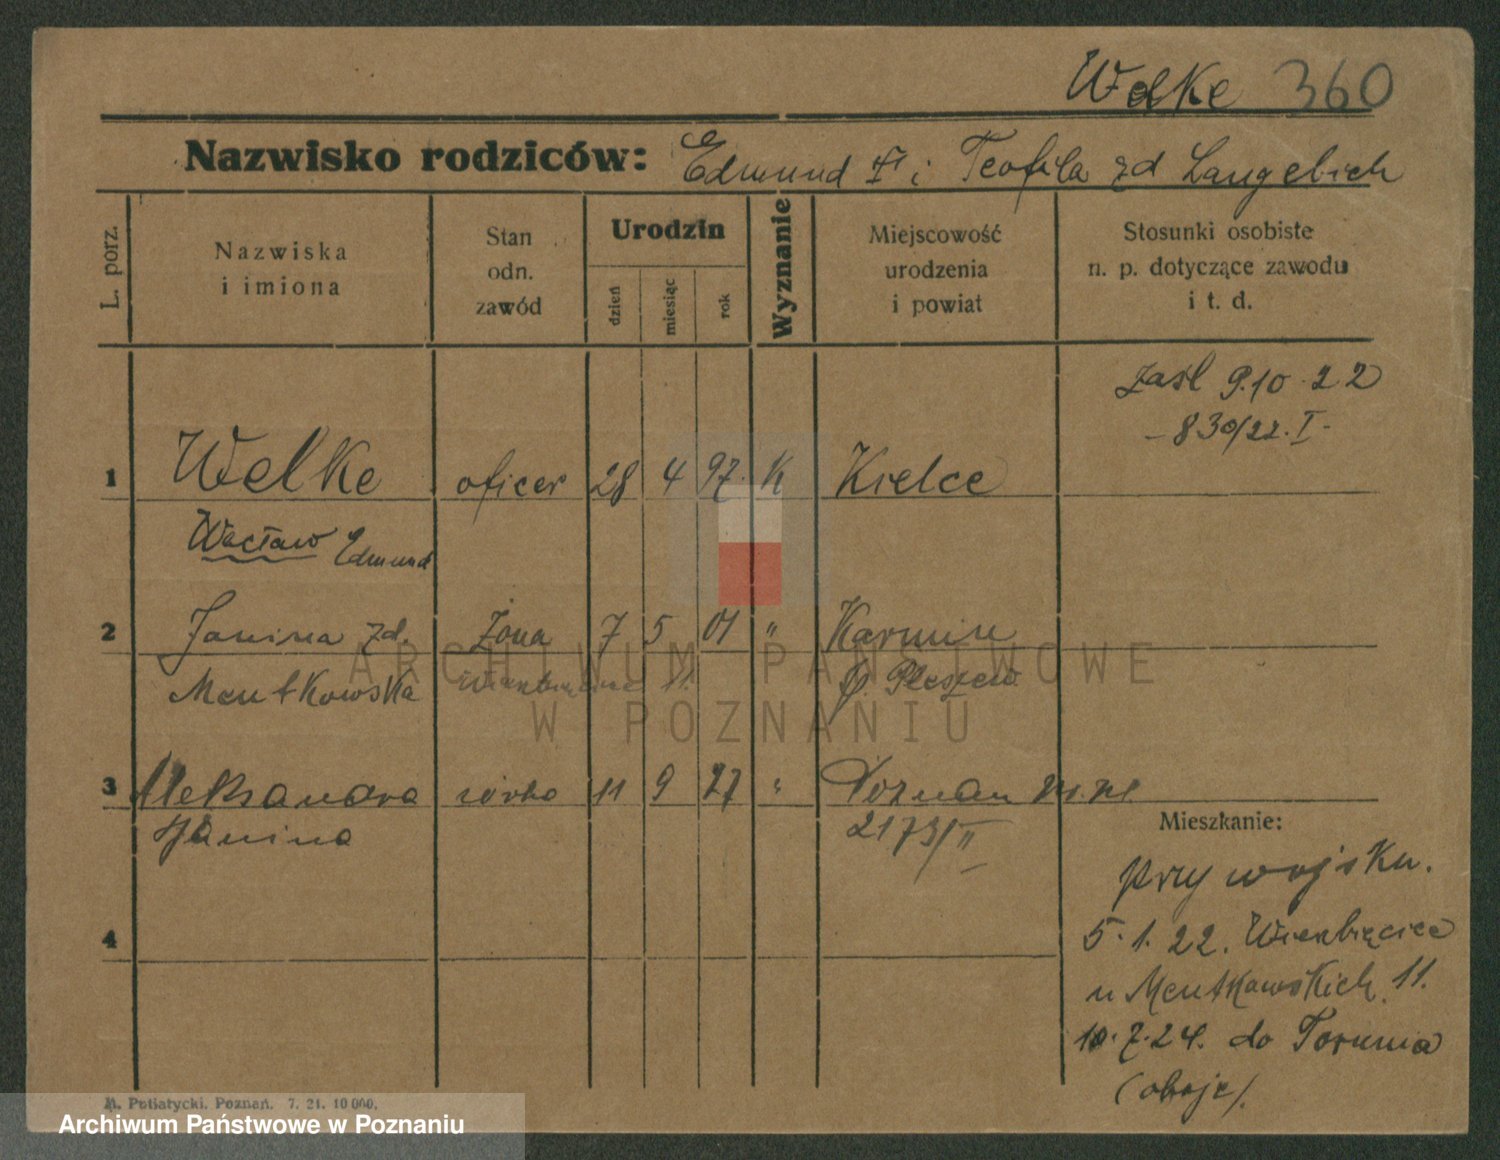 Welke 360
Nazwisko rodziców: Edmund i Teofila zd Langebich
L. porz.
Nazwiska
i imiona
Stan
odn.
zawód
Urodzin
dzień
miesiąc
rok
Wyznanie
Miejscowość
urodzenia
i powiat
Stosunki osobiste
n. p. dotyczące zawodu
i t. d.
zaśl 9.10.22
-830/22.I-
1 Welke oficer 28 4 97. K Kielce
Wacław Edmund
2 Janina zd. żona 7 5 01 " Karmin
Mentkowska Wierzbięcice 11. p. Pleszew
3 Aleksandra córka 11 9 27 " Poznań
Janina 2173/II
Mieszkanie:
przy wojsku.
5.1.22. Wierzbięcice
u Mentkowskich 11.
10.7.24. do Torunia
(oboje).
4
ARCHIWUM PAŃSTWOWE
W POZNANIU
M. Putiatycki. Poznań. 7. 21. 10 000.
Archiwum Państwowe w Poznaniu